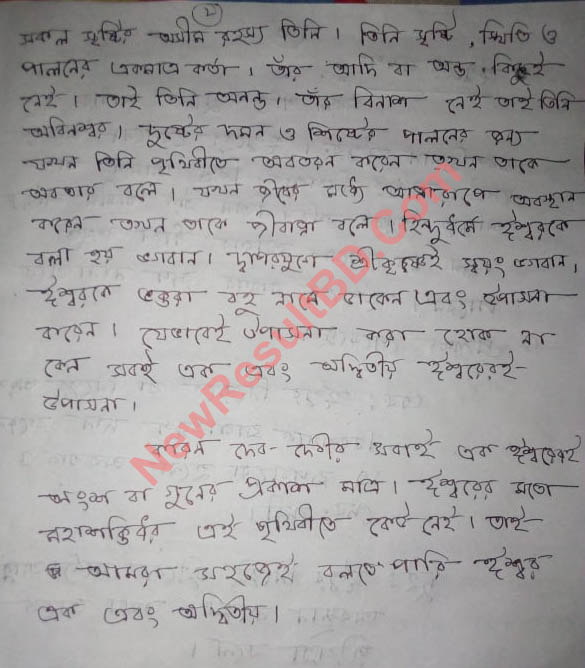 ২
সকল সৃষ্টির অসীম রহস্য তিনি। তিনি সৃষ্টি, স্থিতি ও
পালনের একমাত্র কর্তা। তাঁর আদি বা অন্ত কিছুই
নেই। তাই তিনি অনন্ত। তাঁর বিনাশ নেই তাই তিনি
অবিনশ্বর। দুষ্টের দমন ও শিষ্টের পালনের জন্য
যখন তিনি পৃথিবীতে অবতরন করেন তখন তাকে
অবতার বলে। যখন জীবের মধ্যে আত্মারূপে অবস্থান
করেন তখন তাকে জীবাত্মা বলে। হিন্দুধর্মে ঈশ্বরকে
বলা হয় ভগবান। দ্বাপরযুগে শ্রীকৃষ্ণই স্বয়ং ভগবান।
ঈশ্বরকে ভক্তরা বহু নামে ডাকেন এবং উপাসনা
করেন। যেভাবেই উপাসনা করা হোক না
কেন সবই এক এবং অদ্বিতীয় ঈশ্বরেরই
উপাসনা।
কারন দেব-দেবীর সবাই এক ঈশ্বরেরই
অংশ বা গুনের প্রকাশ মাত্র। ঈশ্বরের মতো
মহাশক্তিধর এই পৃথিবীতে কেউ নেই। তাই
আমরা সহজেই বলতে পারি ঈশ্বর
এক এবং অদ্বিতীয়।
NewResultBD.Com